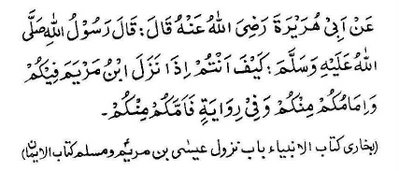 عَنْ اَبِيْ هُرَيْرَةَ رَضِيَ اللّٰهُ عَنْهُ قَالَ: قَالَ رَسُوْلُ اللّٰهِ صَلَّى
اللّٰهُ عَلَيْهِ وَسَلَّمَ: كَيْفَ اَنْتُمْ اِذَا نَزَلَ ابْنُ مَرْيَمَ فِيْكُمْ
وَاِمَامُكُمْ مِنْكُمْ وَفِيْ رِوَايَةٍ فَاَمَّكُمْ مِنْكُمْ۔
(بخاری کتاب الانبیاء باب نزول عیسٰی بن مریم و مسلم کتاب الایمان)